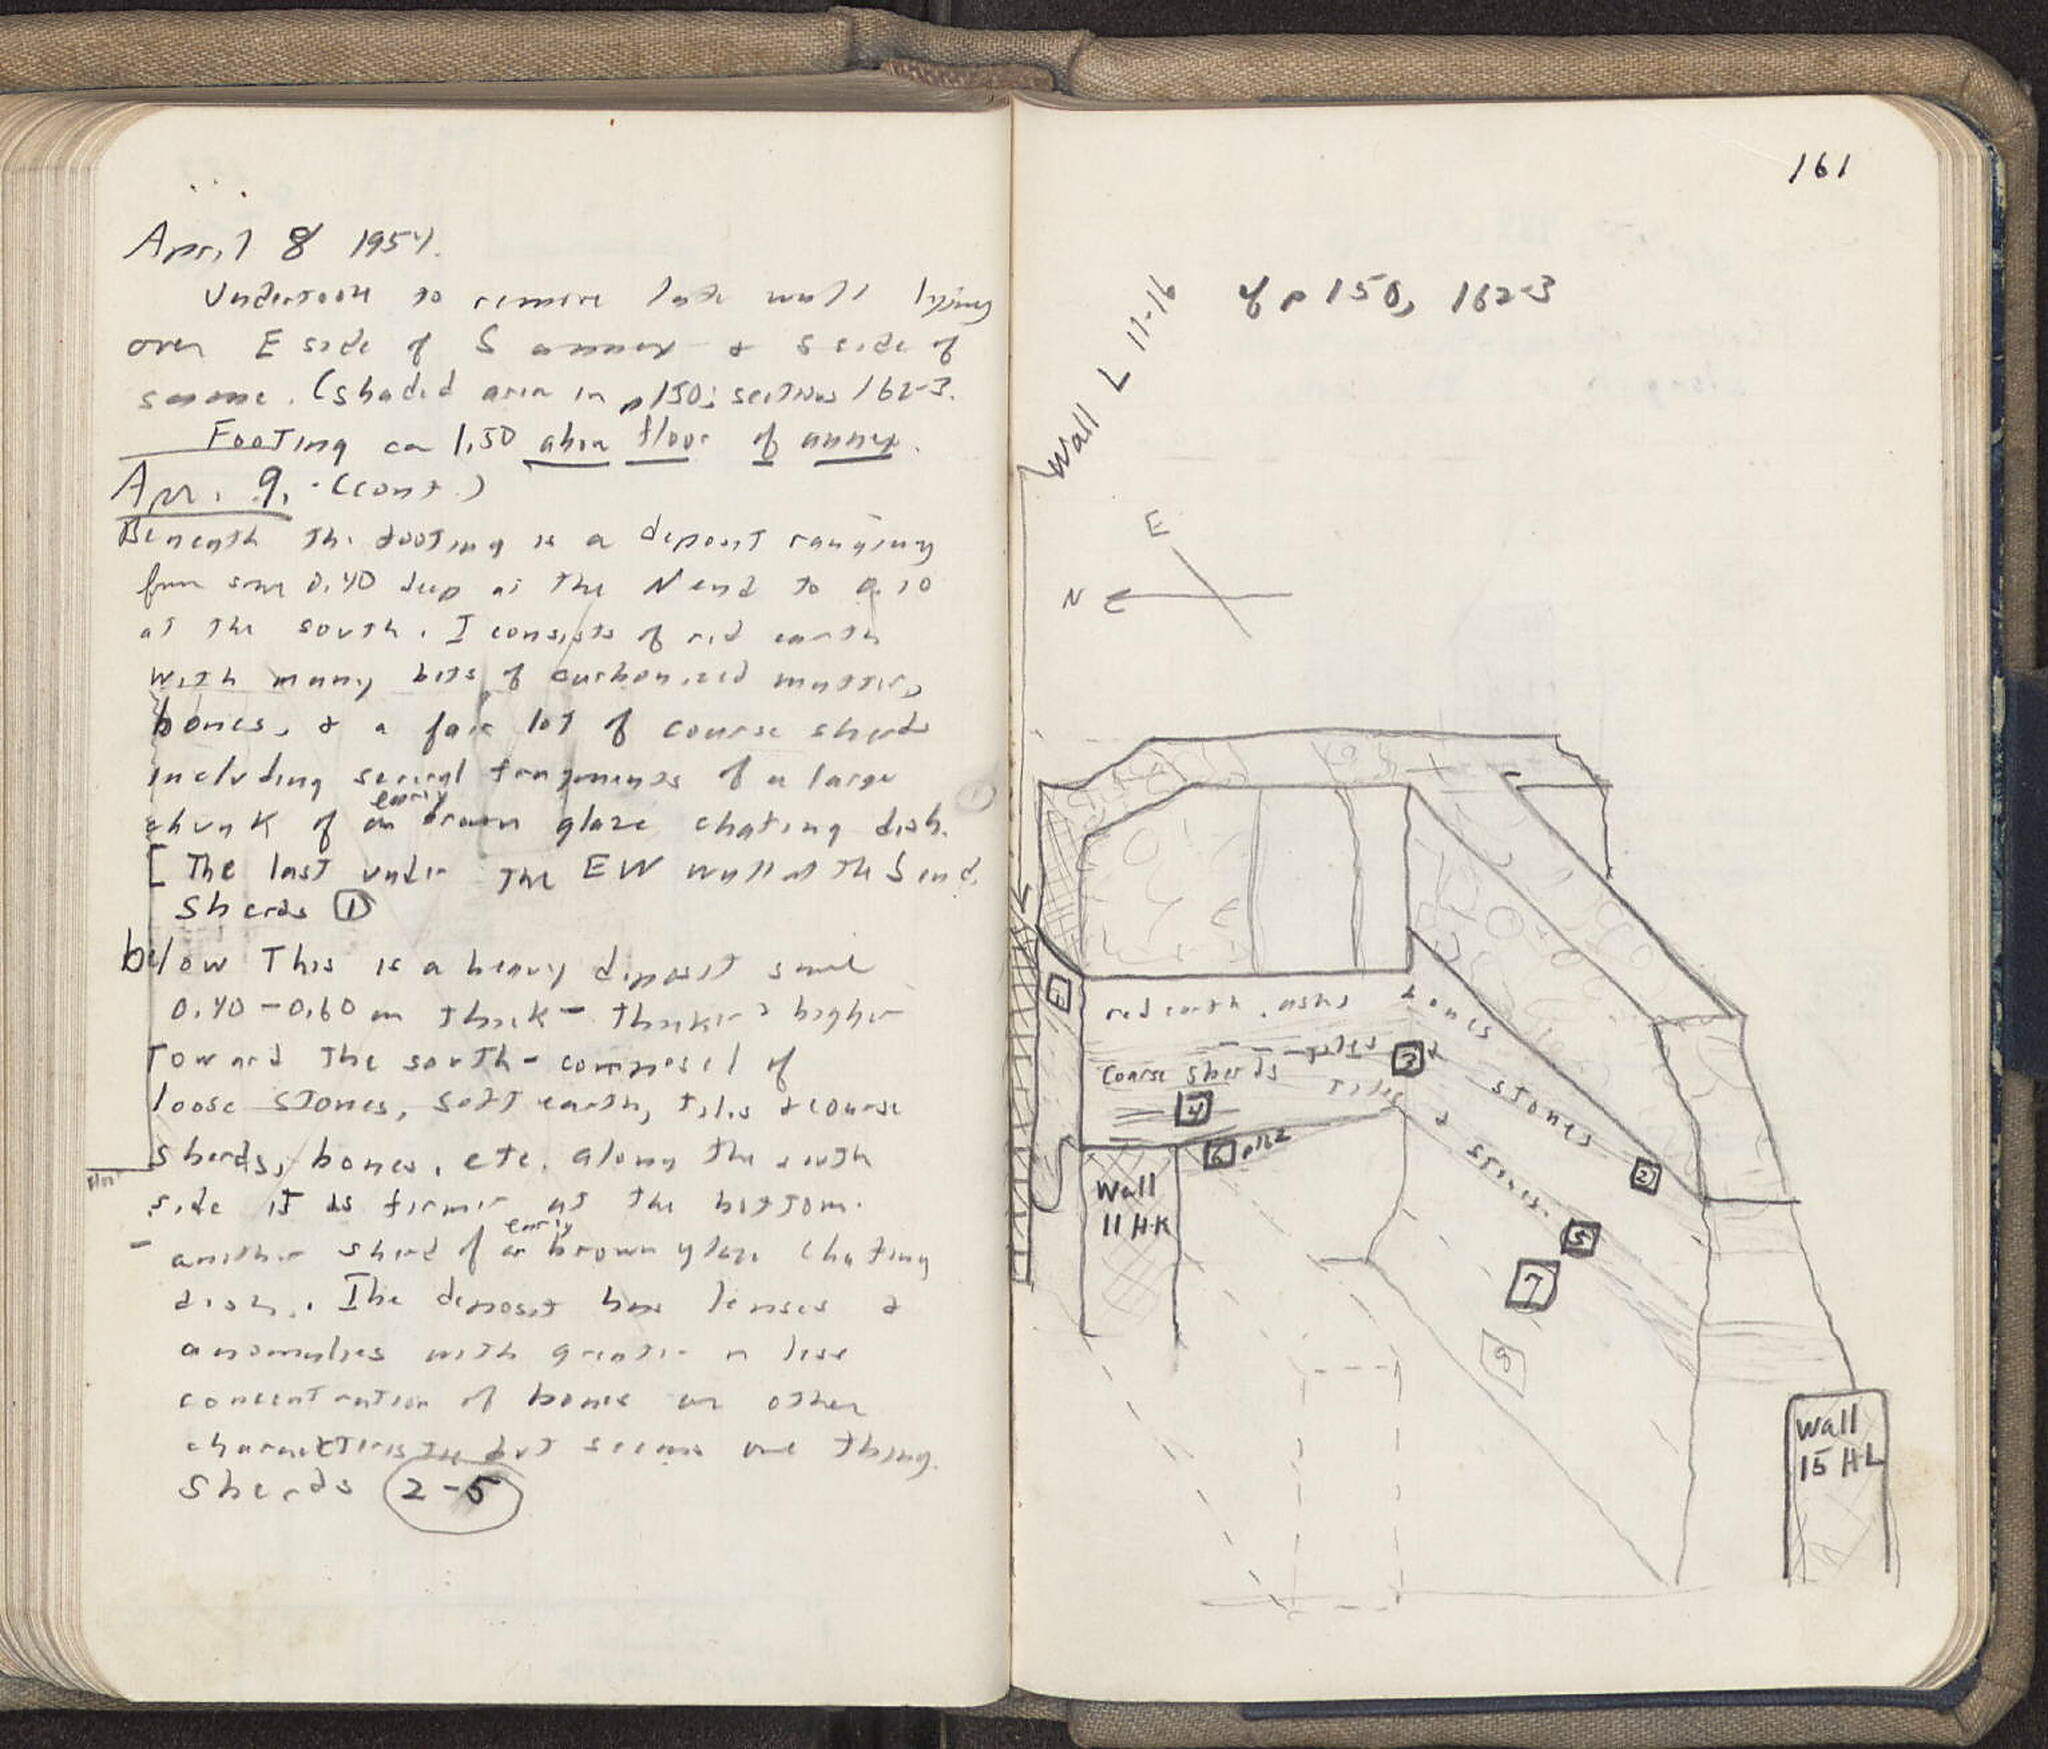 April 8 1954.
Undertook to remove late wall lying
over E side of S annex & S side of
same. (shaded area in p150; sections 162-3.
Footing ca 1.50 above floor of annex.
Apr. 9. (cont.)
Beneath the footing is a deposit ranging
from some 0.40 deep at the N end to 0.10
at the south. I consists of red earth
with many bits of carbonized matter,
bones, & a fair lot of coarse sherds
including several fragments of a large
chunk of an early brown glaze chafing dish.
[The last under the EW wall at the S end.
Sherds 1
below This is a heavy deposit some
0.40-0.60 m thick - thicker & higher
toward the south - composed of
loose stones, soft earth, tiles & coarse
sherds, bones, etc. along the south
side it is firmer at the bottom.
- another sherd of an early brown glaze chafing
dish. The deposit has lenses &
anomalies with greater or less
concentration of bones or other
characteristic but seems one thing.
Sherds 2-5
161
cf p 150, 162-3
Wall L 11-16
E
N
1
red earth, ashes bones
tiles 3 &
coarse sherds
tiles & stones
stones
4
6 p162
2
5
7
8
Wall
11 H-K
Wall
15 H-L